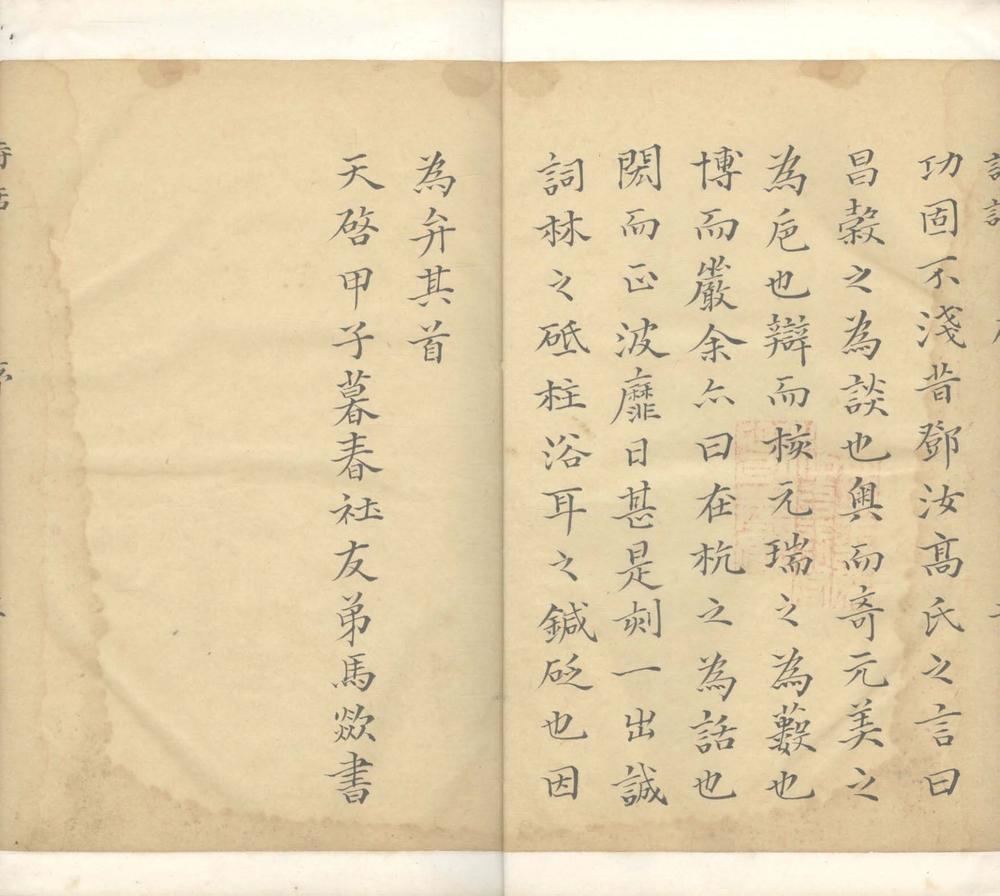 功固不淺昔鄧汝高氏之言曰
昌穀之為談也奧而奇元美之
為巵也辯而核元瑞之為藪也
博而嚴余亦曰在杭之為話也
閎而正波靡日甚是刻一出誠
詞林之砥柱浴耳之鍼砭也因
為弁其首
天啓甲子暮春社友弟馬歘書